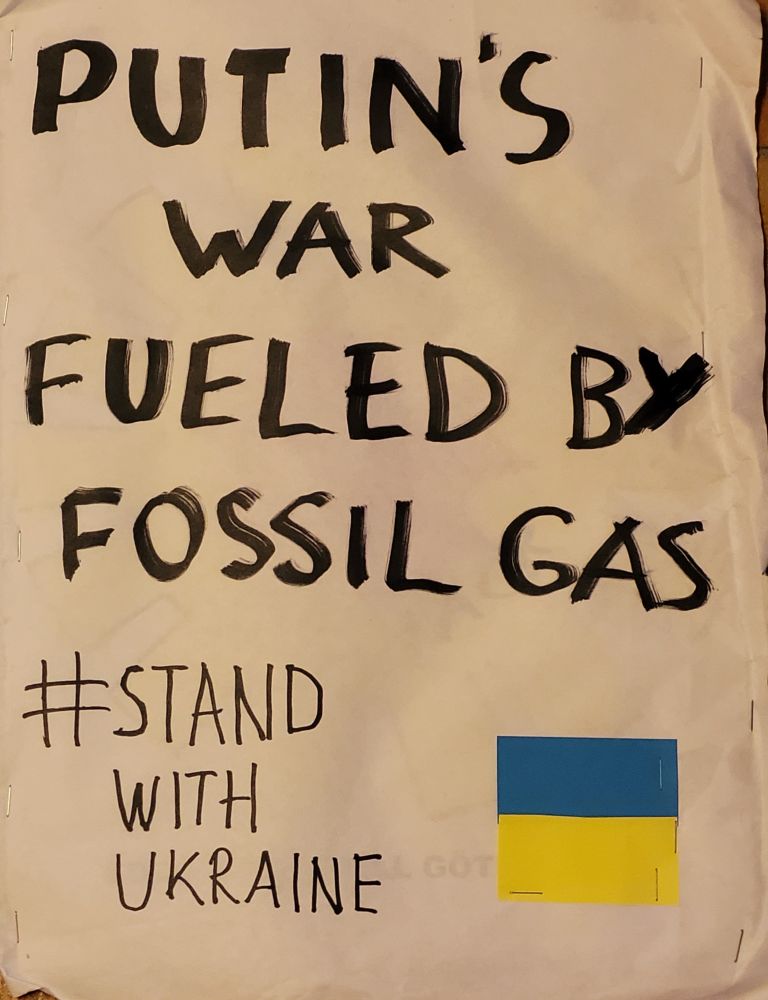 PUTIN'S
WAR
FUELED BY
FOSSIL GAS
#STAND
WITH
UKRAINE